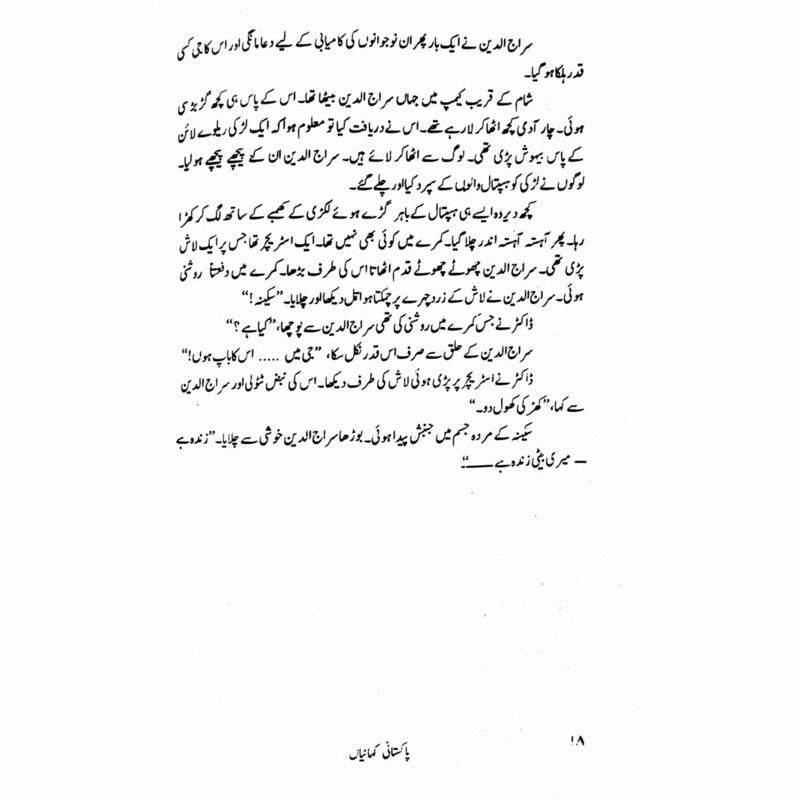 سراج الدین نے ایک بار پھر ان نوجوانوں کی کامیابی کے لیے دعا مانگی اور اس کا جی کسی
قدر ہلکا ہو گیا۔
شام کے قریب کیمپ میں جہاں سراج الدین بیٹھا تھا۔ اس کے پاس ہی کچھ گڑبڑ سی
ہوئی۔ چار آدمی کچھ اٹھا کر لا رہے تھے۔ اس نے دریافت کیا تو معلوم ہوا کہ ایک لڑکی ریلوے لائن
کے پاس بیہوش پڑی تھی۔ لوگ سے اٹھا کر لائے ہیں۔ سراج الدین ان کے پیچھے پیچھے ہو لیا۔
لوگوں نے لڑکی کو ہسپتال والوں کے سپرد کیا اور چلے گئے۔
کچھ دیر وہ ایسے ہی ہسپتال کے باہر گڑے ہوئے لکڑی کے کھمبے کے ساتھ لگ کر کھڑا
رہا۔ پھر آہستہ آہستہ اندر چلا گیا۔ کمرے میں کوئی بھی نہیں تھا۔ ایک اسٹریچر تھا جس پر ایک لاش
پڑی تھی۔ سراج الدین چھوٹے چھوٹے قدم اٹھاتا اس کی طرف بڑھا۔ کمرے میں دفعتاً روشنی
ہوئی۔ سراج الدین نے لاش کے زرد چہرے پر چمکتا ہوا تل دیکھا اور چلایا۔ ”سکینہ!“
ڈاکٹر نے جس کمرے میں روشنی کی تھی سراج الدین سے پوچھا، ”کیا ہے؟“
سراج الدین کے حلق سے صرف اس قدر نکل سکا، ”جی میں ..... اس کا باپ ہوں!“
ڈاکٹر نے اسٹریچر پر پڑی ہوئی لاش کی طرف دیکھا۔ اس کی نبض ٹٹولی اور سراج الدین
سے کہا، ”کھڑکی کھول دو۔“
سکینہ کے مردہ جسم میں جنبش پیدا ہوئی۔ بوڑھا سراج الدین خوشی سے چلایا۔ ”زندہ ہے
— میری بیٹی زندہ ہے ——“
۱۸
پاکستانی کہانیاں